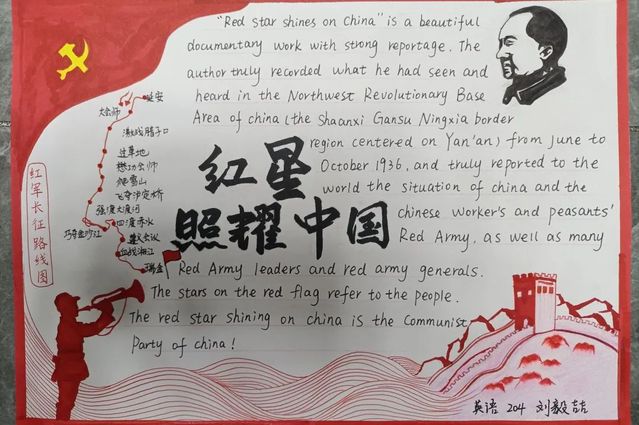 "Red star shines on China" is a beautiful
documentary work with strong reportage. The
author truly recorded what he had seen and
heard in the Northwest Revolutionary Base
Area of china (the Shaanxi Gansu Ningxia border
region centered on Yan'an) from June to
October 1936, and truly reported to the
world the situation of china and the
chinese worker's and peasants'
Red Army, as well as many
Red Army leaders and red army generals.
The stars on the red flag refer to the people.
The red star shining on china is the Communist
Party of china!
红星
照耀中国
红军长征路线图
延安
大会师
激战腊子口
过草地
懋功会师
爬雪山
飞夺泸定桥
强渡大渡河
四渡赤水
巧夺金沙江
遵义会议
血战湘江
瑞金
英语 204 刘毅喆